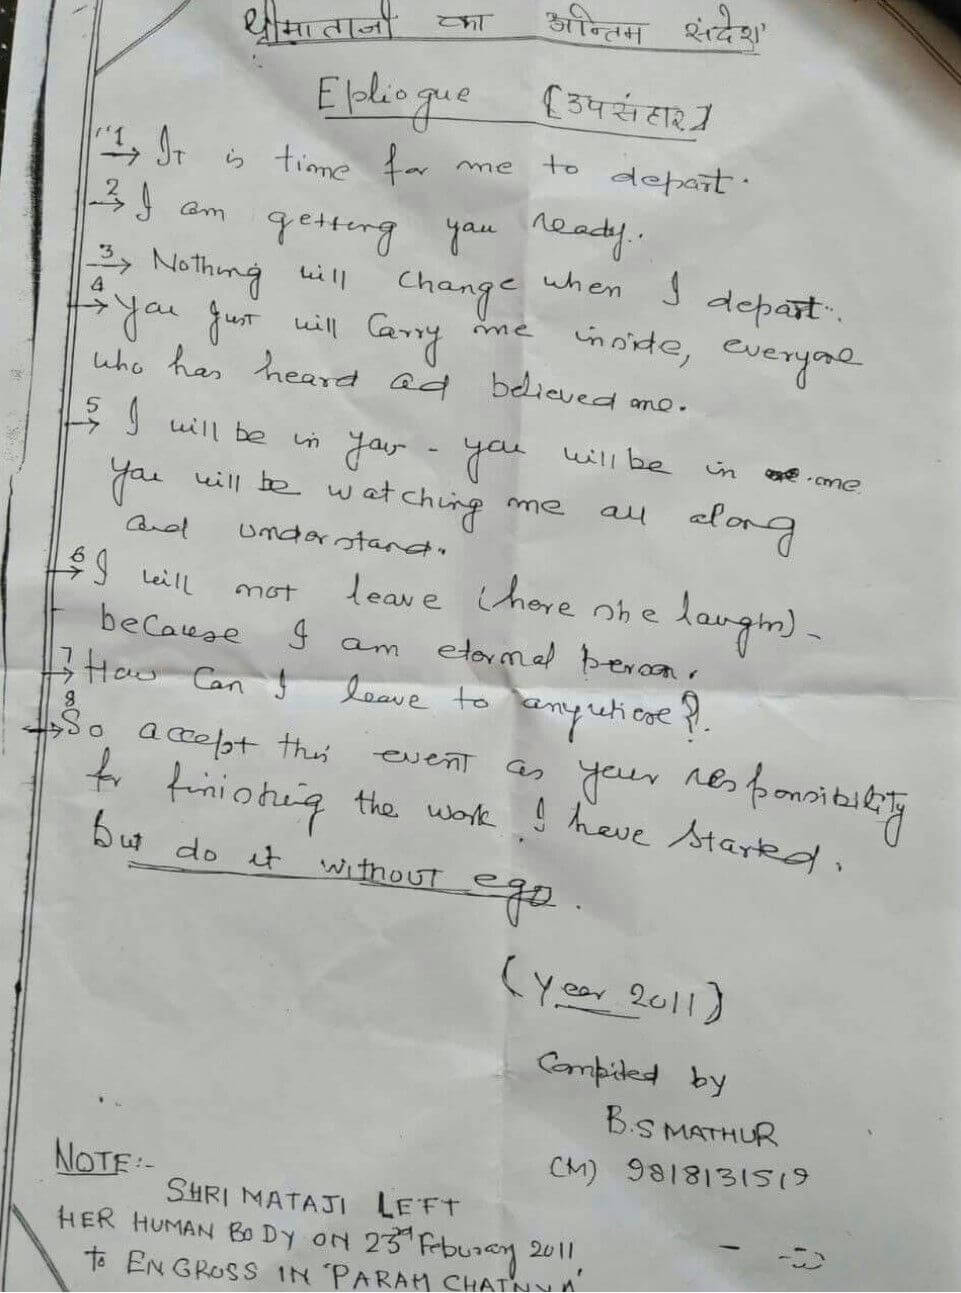 श्रीमाताजी का अन्तिम संदेश
Epliogue (उपसंहार)
"1, It is time for me to depart.
2 I am getting you ready.
3 Nothing will change when I depart.
4 You just will Carry me inside, everyone
who has heard ad believed me.
5 I will be in you - you will be in me
You will be watching me all along
and understand.
6 I will not leave (here she laughs) -
because I am eternal person.
7 How Can I leave to anywhere?
8 So accept this event as your responsibility
for finishing the work I have started,
but do it without ego.
(Year 2011)
Compiled by
B.S MATHUR
(M) 9818131519
NOTE:-
SHRI MATAJI LEFT
HER HUMAN BODY ON 23rd Feburary 2011
To ENGROSS IN 'PARAM CHATNYA'